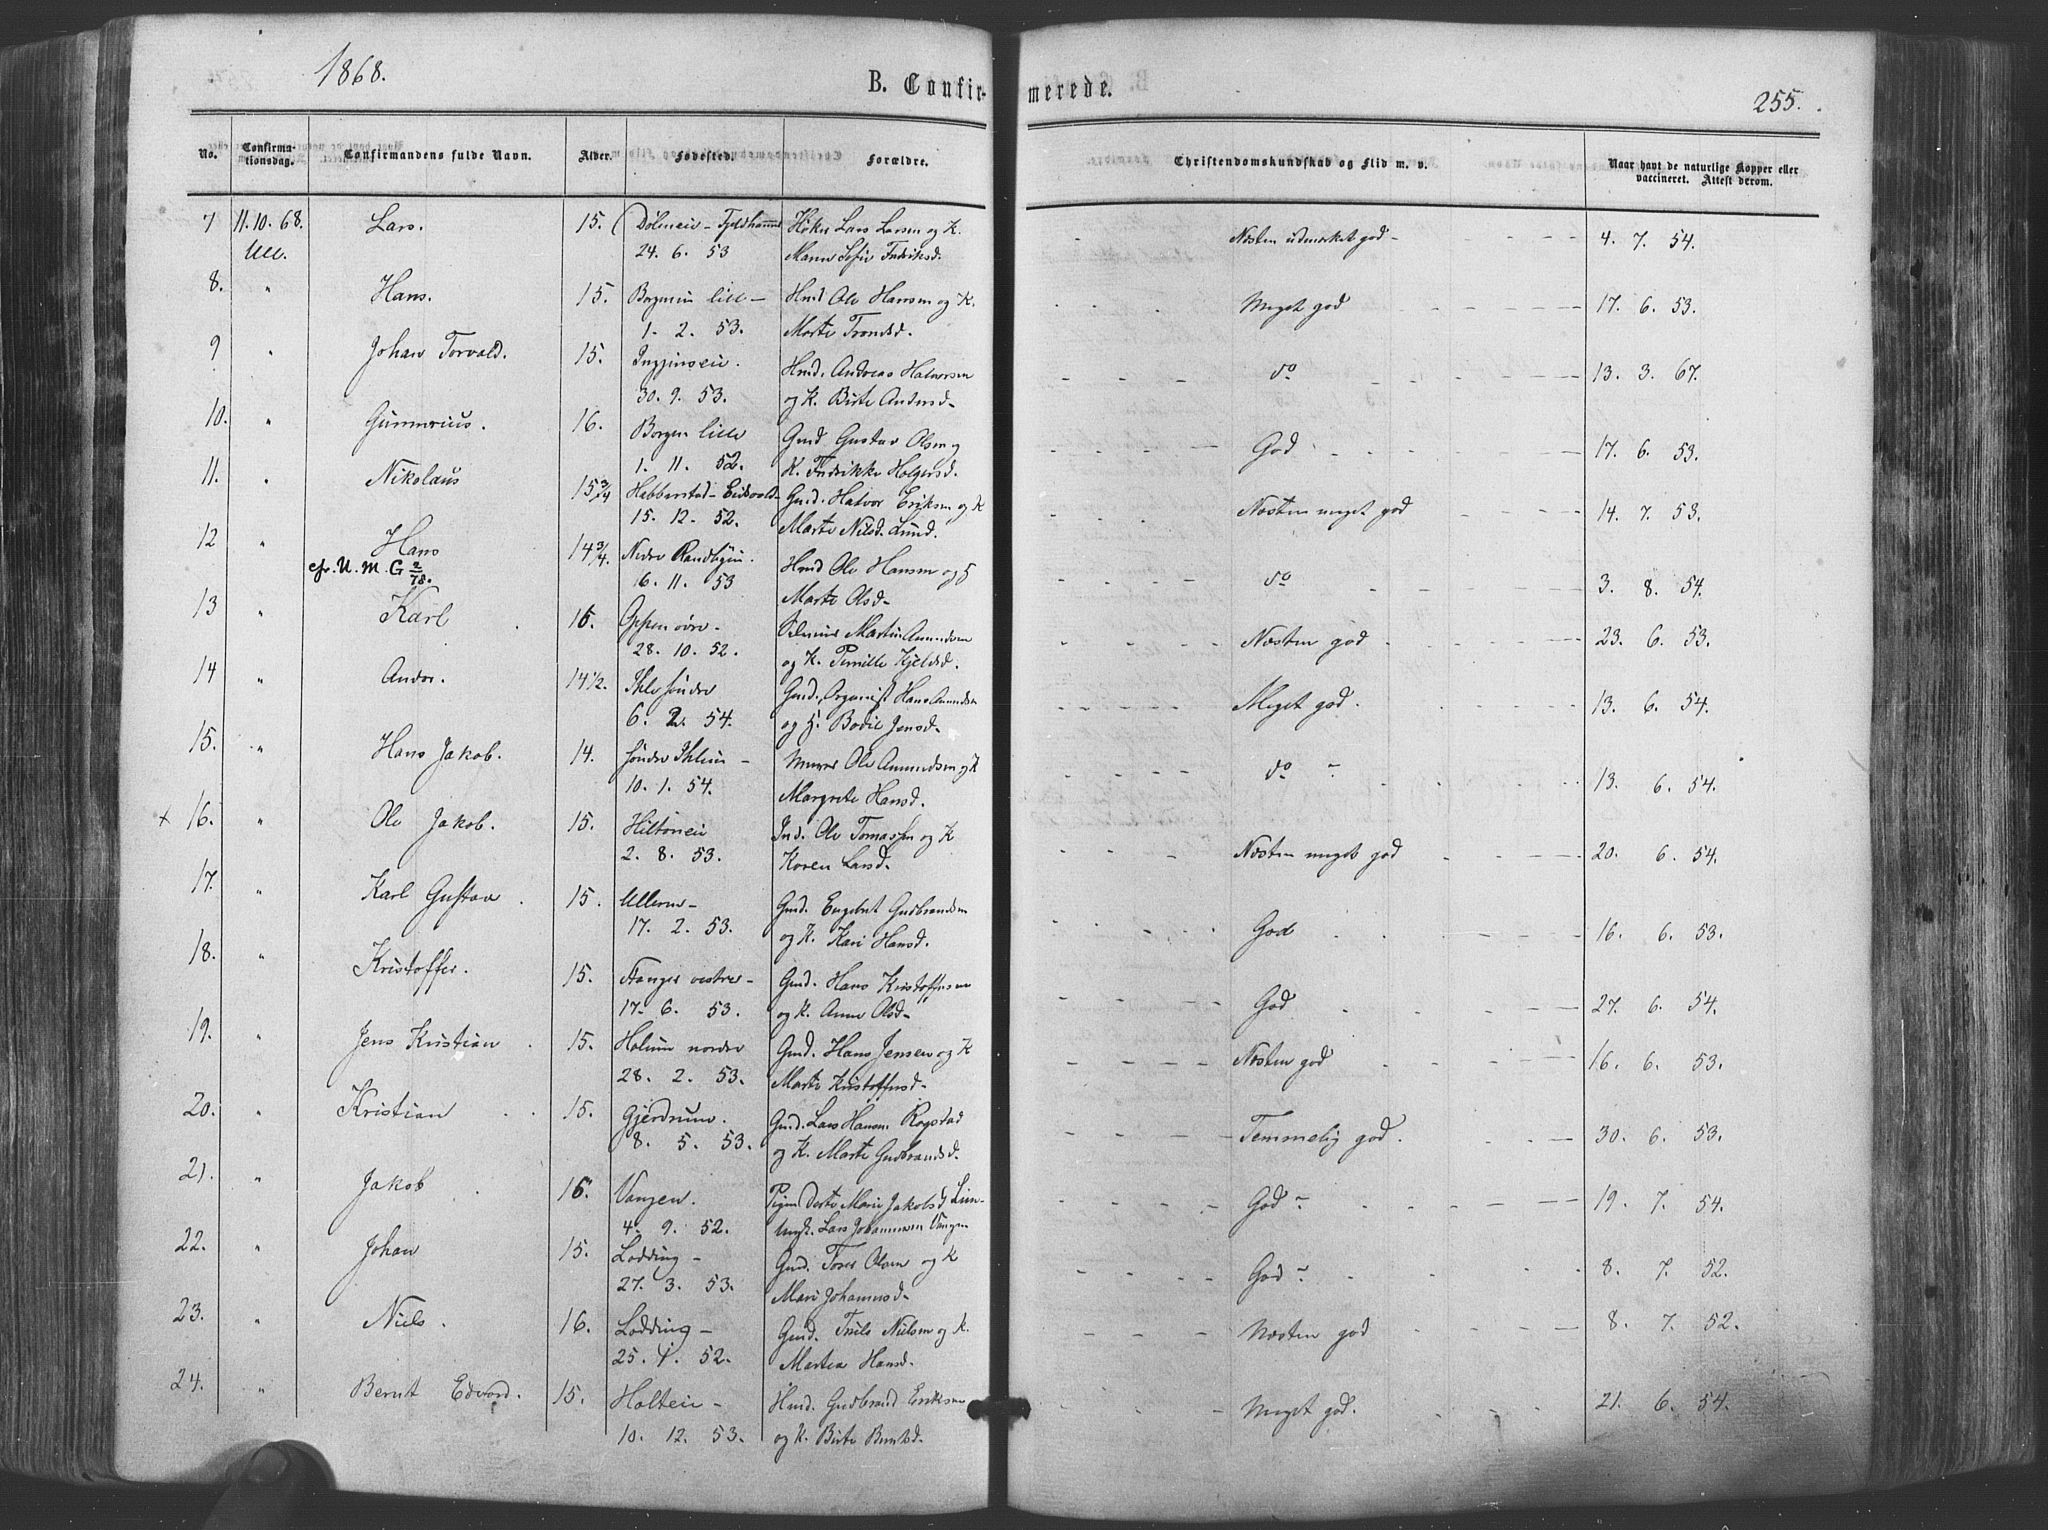 1868.
B. Confir-
merede.
255.
No. Confirmationsdag. Confirmandens fulde Navn. Alder. Fødested. Forældre. Christendomskundskab og Flid m. v. Naar havt de naturlige Kopper eller vaccineret. Attest derom.
7 11.10.68. Lars. 15. Lars Larsen og K. Næsten udmerket god 4. 7. 54.
Ull. 24. 6. 53 Sofie Fredriksd.
8. " Hans. 15. lille Ole Hansen og K. Meget god 17. 6. 53.
1. 2. 53. Marte Trondsd.
9 " Johan Torvald. 15. Hmd. Andreas Halvorsen do 13. 3. 67.
30. 9. 53. og K. Birte Andersd.
10. " Gunnerius. 16. Borgen lille Gmd Gustav Olsen og God 17. 6. 53.
1. 11. 52. K. Fredrikke Holgersd.
11. " Nikolaus 15 3/4 Habberstad - Eidsvold Gmd. Halvor Eriksen og K Næsten meget god 14. 7. 53.
15. 12. 52. Marte Nilsd. Lund.
12 " Hans 14 3/4 Nedre Hmd Ole Hansen og H do 3. 8. 54.
cfr. U. M. G 2/78. 16. 11. 53 Marte Olsd.
13 " Karl 15. Oppen øvre Martin Amundsen Næsten god 23. 6. 53.
28. 10. 52. og K. Pernille Kjeldsd.
14 " Andor. 14 1/2. Ihle søndre Gmd, Organist Hans Amundsen Meget god 13. 6. 54.
6. 2. 54. og H. Bodil Jensd.
15. " Hans Jakob. 14. søndre Murer Ole Amundsen og K do 13. 6. 54.
10. 1. 54. Margrete Hansd.
x 16. " Ole Jakob. 15. Hiltoneie Ind. Ole Tomassen og K Næsten meget god 20. 6. 54.
2. 8. 53. Karen Larsd.
17. " Karl Gustav 15. Ulleren Gmd. Engebret Gudbrandsen God 16. 6. 53.
17. 2. 53. og K. Kari Hansd.
18. " Kristoffer. 15. Stanger vestre Gmd. Hans Kristoffersen God 27. 6. 54.
17. 6. 53. og K. Anne Olsd.
19. " Jens Kristian 15. Holum nordre Gmd. Hans Jensen og K Næsten god 16. 6. 53.
28. 2. 53. Marte Kristoffersd.
20. " Kristian 15. Gjerdrum. Gmd. Lars Hansen Rogstad Temmelig god. 30. 6. 53.
8. 5. 53. og K. Marte Gudbrandsd.
21. " Jakob 16. Vangen. Pigen Dorte Marie Jakobsd God 19. 7. 54.
4. 9. 52. Ungk. Lars Johannesen Vangen
22. " Johan 15. Lodding Gmd. Tover Olsen og K God 8. 7. 52.
27. 3. 53. Mari Johannesd.
23. " Niels. 16. Lodding Gmd. Truls Nielsen og K. Næsten god 8. 7. 52.
25. 1. 52. Martea Hansd.
24. " Bernt Edvard. 15. Holteie Hmd. Gudbrand Eriksen Meget god. 21. 6. 54.
10. 12. 53. og K. Birte Berntsd.